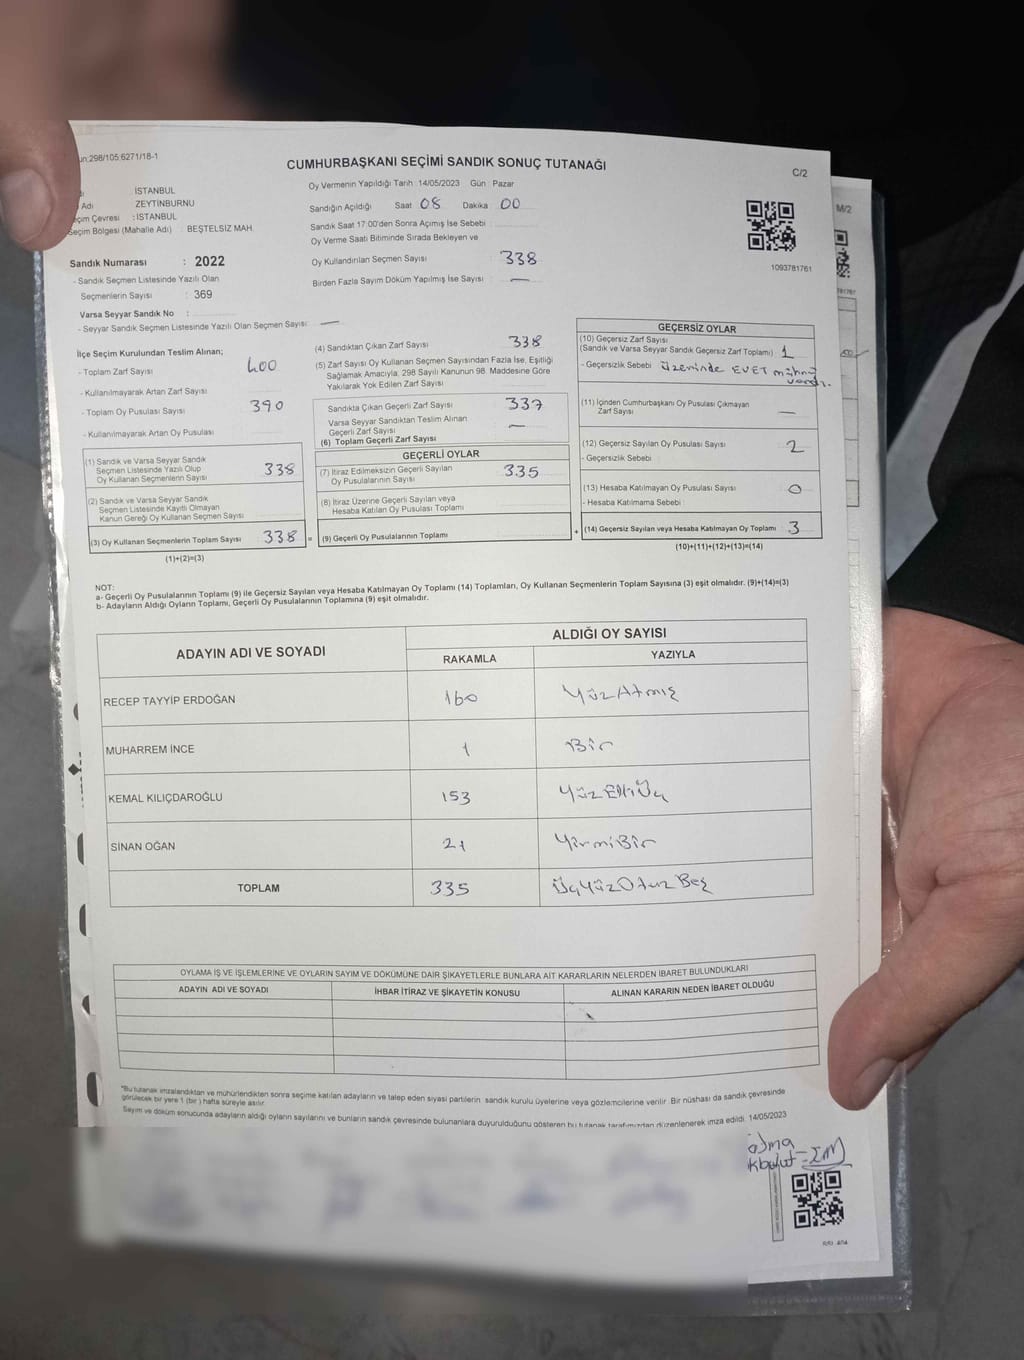 un:298/105:6271/18-1
CUMHURBAŞKANI SEÇİMİ SANDIK SONUÇ TUTANAĞI
C/2
M/2
: İSTANBUL
Adı : ZEYTİNBURNU
eçim Çevresi : İSTANBUL
Seçim Bölgesi (Mahalle Adı) : BEŞTELSİZ MAH.
Sandık Numarası : 2022
- Sandık Seçmen Listesinde Yazılı Olan
Seçmenlerin Sayısı : 369
Varsa Seyyar Sandık No :
- Seyyar Sandık Seçmen Listesinde Yazılı Olan Seçmen Sayısı: —
Oy Vermenin Yapıldığı Tarih :14/05/2023 Gün : Pazar
Sandığın Açıldığı Saat 08 Dakika 00
Sandık Saat 17:00'den Sonra Açımış İse Sebebi :
Oy Verme Saati Bitiminde Sırada Bekleyen ve
Oy Kullandırılan Seçmen Sayısı : 338
Birden Fazla Sayım Döküm Yapılmış İse Sayısı : —
1093781761
İlçe Seçim Kurulundan Teslim Alınan;
- Toplam Zarf Sayısı : 400
- Kullanılmayarak Artan Zarf Sayısı :
- Toplam Oy Pusulası Sayısı : 390
- Kullanılmayarak Artan Oy Pusulası :
(1) Sandık ve Varsa Seyyar Sandık
Seçmen Listesinde Yazılı Olup
Oy Kullanan Seçmenlerin Sayısı : 338
(2) Sandık ve Varsa Seyyar Sandık
Seçmen Listesinde Kayıtlı Olmayan
Kanun Gereği Oy Kullanan Seçmen Sayısı
(3) Oy Kullanan Seçmenlerin Toplam Sayısı : 338
(1)+(2)=(3)
(4) Sandıktan Çıkan Zarf Sayısı : 338
(5) Zarf Sayısı Oy Kullanan Seçmen Sayısından Fazla İse, Eşitliği
Sağlamak Amacıyla, 298 Sayılı Kanunun 98. Maddesine Göre
Yakılarak Yok Edilen Zarf Sayısı :
Sandıkta Çıkan Geçerli Zarf Sayısı : 337
Varsa Seyyar Sandıktan Teslim Alınan
Geçerli Zarf Sayısı : —
(6) Toplam Geçerli Zarf Sayısı
GEÇERLİ OYLAR
(7) İtiraz Edilmeksizin Geçerli Sayılan
Oy Pusulalarının Sayısı : 335
(8) İtiraz Üzerine Geçerli Sayılan veya
Hesaba Katılan Oy Pusulası Toplamı
= (9) Geçerli Oy Pusulalarının Toplamı
GEÇERSİZ OYLAR
(10) Geçersiz Zarf Sayısı
(Sandık ve Varsa Seyyar Sandık Geçersiz Zarf Toplamı) : 1
- Geçersizlik Sebebi : Üzerinde EVET mühürü
vardı.
(11) İçinden Cumhurbaşkanı Oy Pusulası Çıkmayan
Zarf Sayısı : —
(12) Geçersiz Sayılan Oy Pusulası Sayısı : 2
- Geçersizlik Sebebi :
(13) Hesaba Katılmayan Oy Pusulası Sayısı : 0
- Hesaba Katılmama Sebebi :
+ (14) Geçersiz Sayılan veya Hesaba Katılmayan Oy Toplamı : 3
(10)+(11)+(12)+(13)=(14)
NOT:
a- Geçerli Oy Pusulalarının Toplamı (9) ile Geçersiz Sayılan veya Hesaba Katılmayan Oy Toplamı (14) Toplamları, Oy Kullanan Seçmenlerin Toplam Sayısına (3) eşit olmalıdır. (9)+(14)=(3)
b- Adayların Aldığı Oyların Toplamı, Geçerli Oy Pusulalarının Toplamına (9) eşit olmalıdır.
ADAYIN ADI VE SOYADI
ALDIĞI OY SAYISI
RAKAMLA YAZIYLA
RECEP TAYYİP ERDOĞAN 160 YüzAtmış
MUHARREM İNCE 1 Bir
KEMAL KILIÇDAROĞLU 153 YüzElliÜç
SİNAN OĞAN 21 YirmiBir
TOPLAM 335 ÜçYüzOtuzBeş
OYLAMA İŞ VE İŞLEMLERİNE VE OYLARIN SAYIM VE DÖKÜMÜNE DAİR ŞİKAYETLERLE BUNLARA AİT KARARLARIN NELERDEN İBARET BULUNDUKLARI
ADAYIN ADI VE SOYADI İHBAR İTİRAZ VE ŞİKAYETİN KONUSU ALINAN KARARIN NEDEN İBARET OLDUĞU
*Bu tutanak imzalandıktan ve mühürlendikten sonra seçime katılan adayların ve talep eden siyasi partilerin sandık kurulu üyelerine veya gözlemcilerine verilir. Bir nüshası da sandık çevresinde
görülecek bir yere 1 (bir) hafta süreyle asılır.
Sayım ve döküm sonucunda adayların aldığı oyların sayılarını ve bunların sandık çevresinde bulunanlara duyurulduğunu gösteren bu tutanak tarafımızdan düzenlenerek imza edildi. 14/05/2023